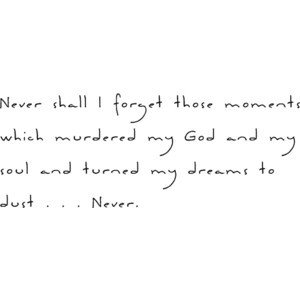 Never shall I forget those moments
which murdered my God and my
soul and turned my dreams to
dust . . . Never.